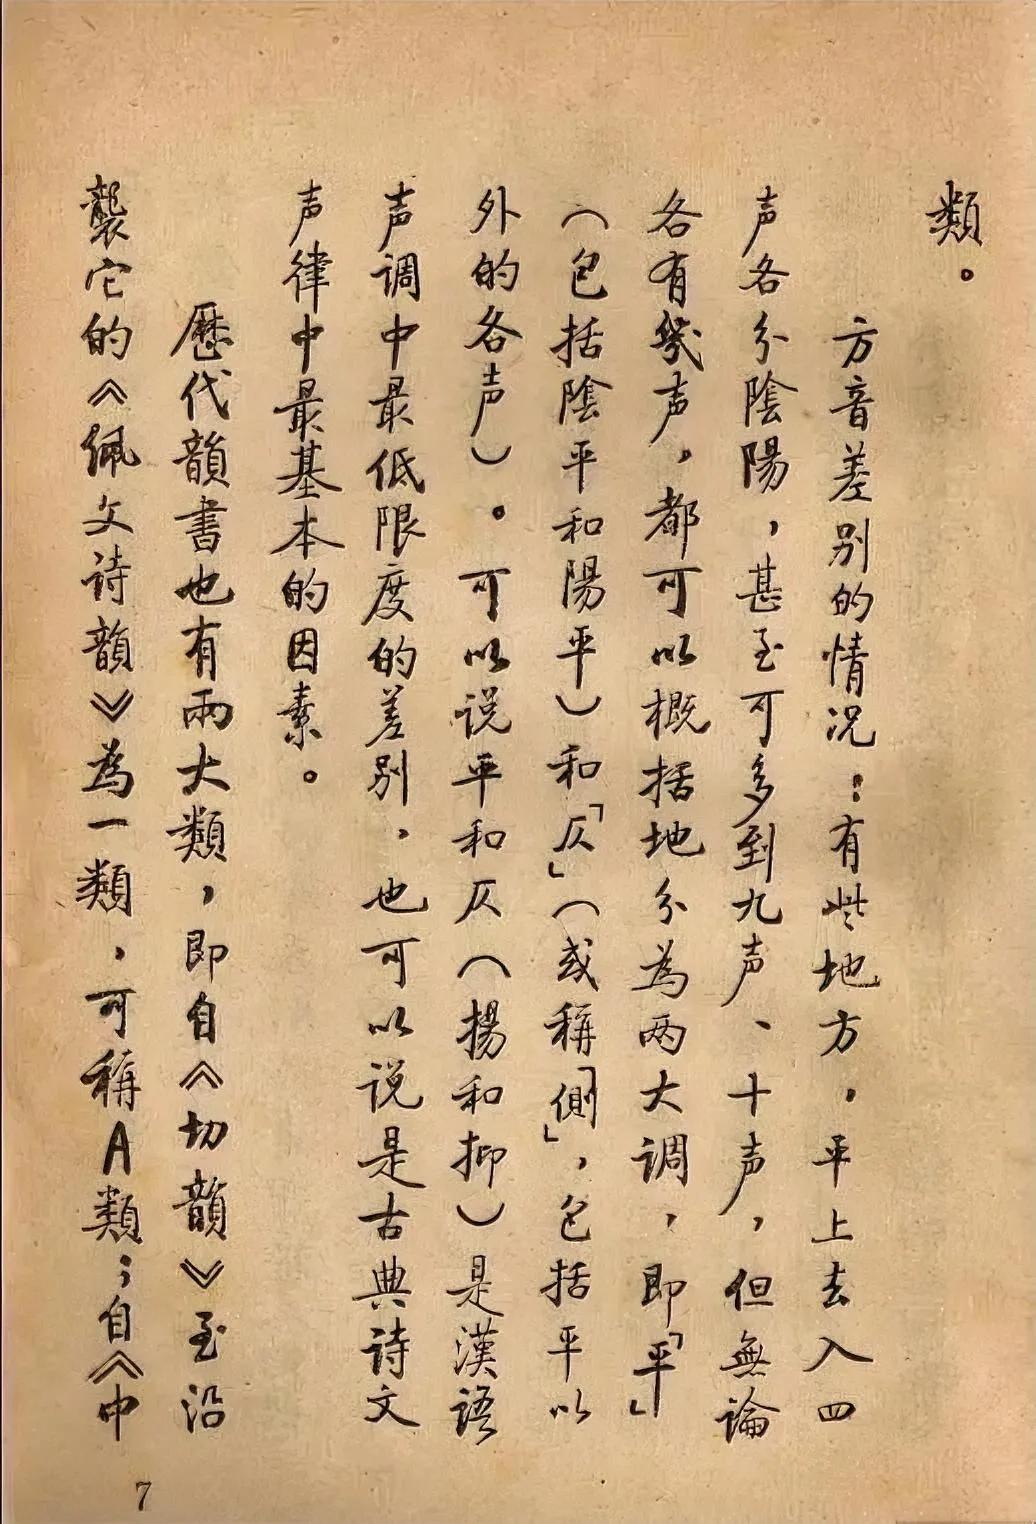 類。
方音差别的情况：有些地方，平上去入四
声各分陰陽，甚至可多到九声、十声，但無論
各有幾声，都可以概括地分為两大调，即「平」
（包括陰平和陽平）和「仄」（或稱「側」，包括平以
外的各声）。可以说平和仄（揚和抑）是漢语
声调中最低限度的差别，也可以说是古典诗文
声律中最基本的因素。
歷代韻書也有兩大類，即自《切韻》至沿
襲它的《佩文诗韻》為一類，可稱A類；自《中
7